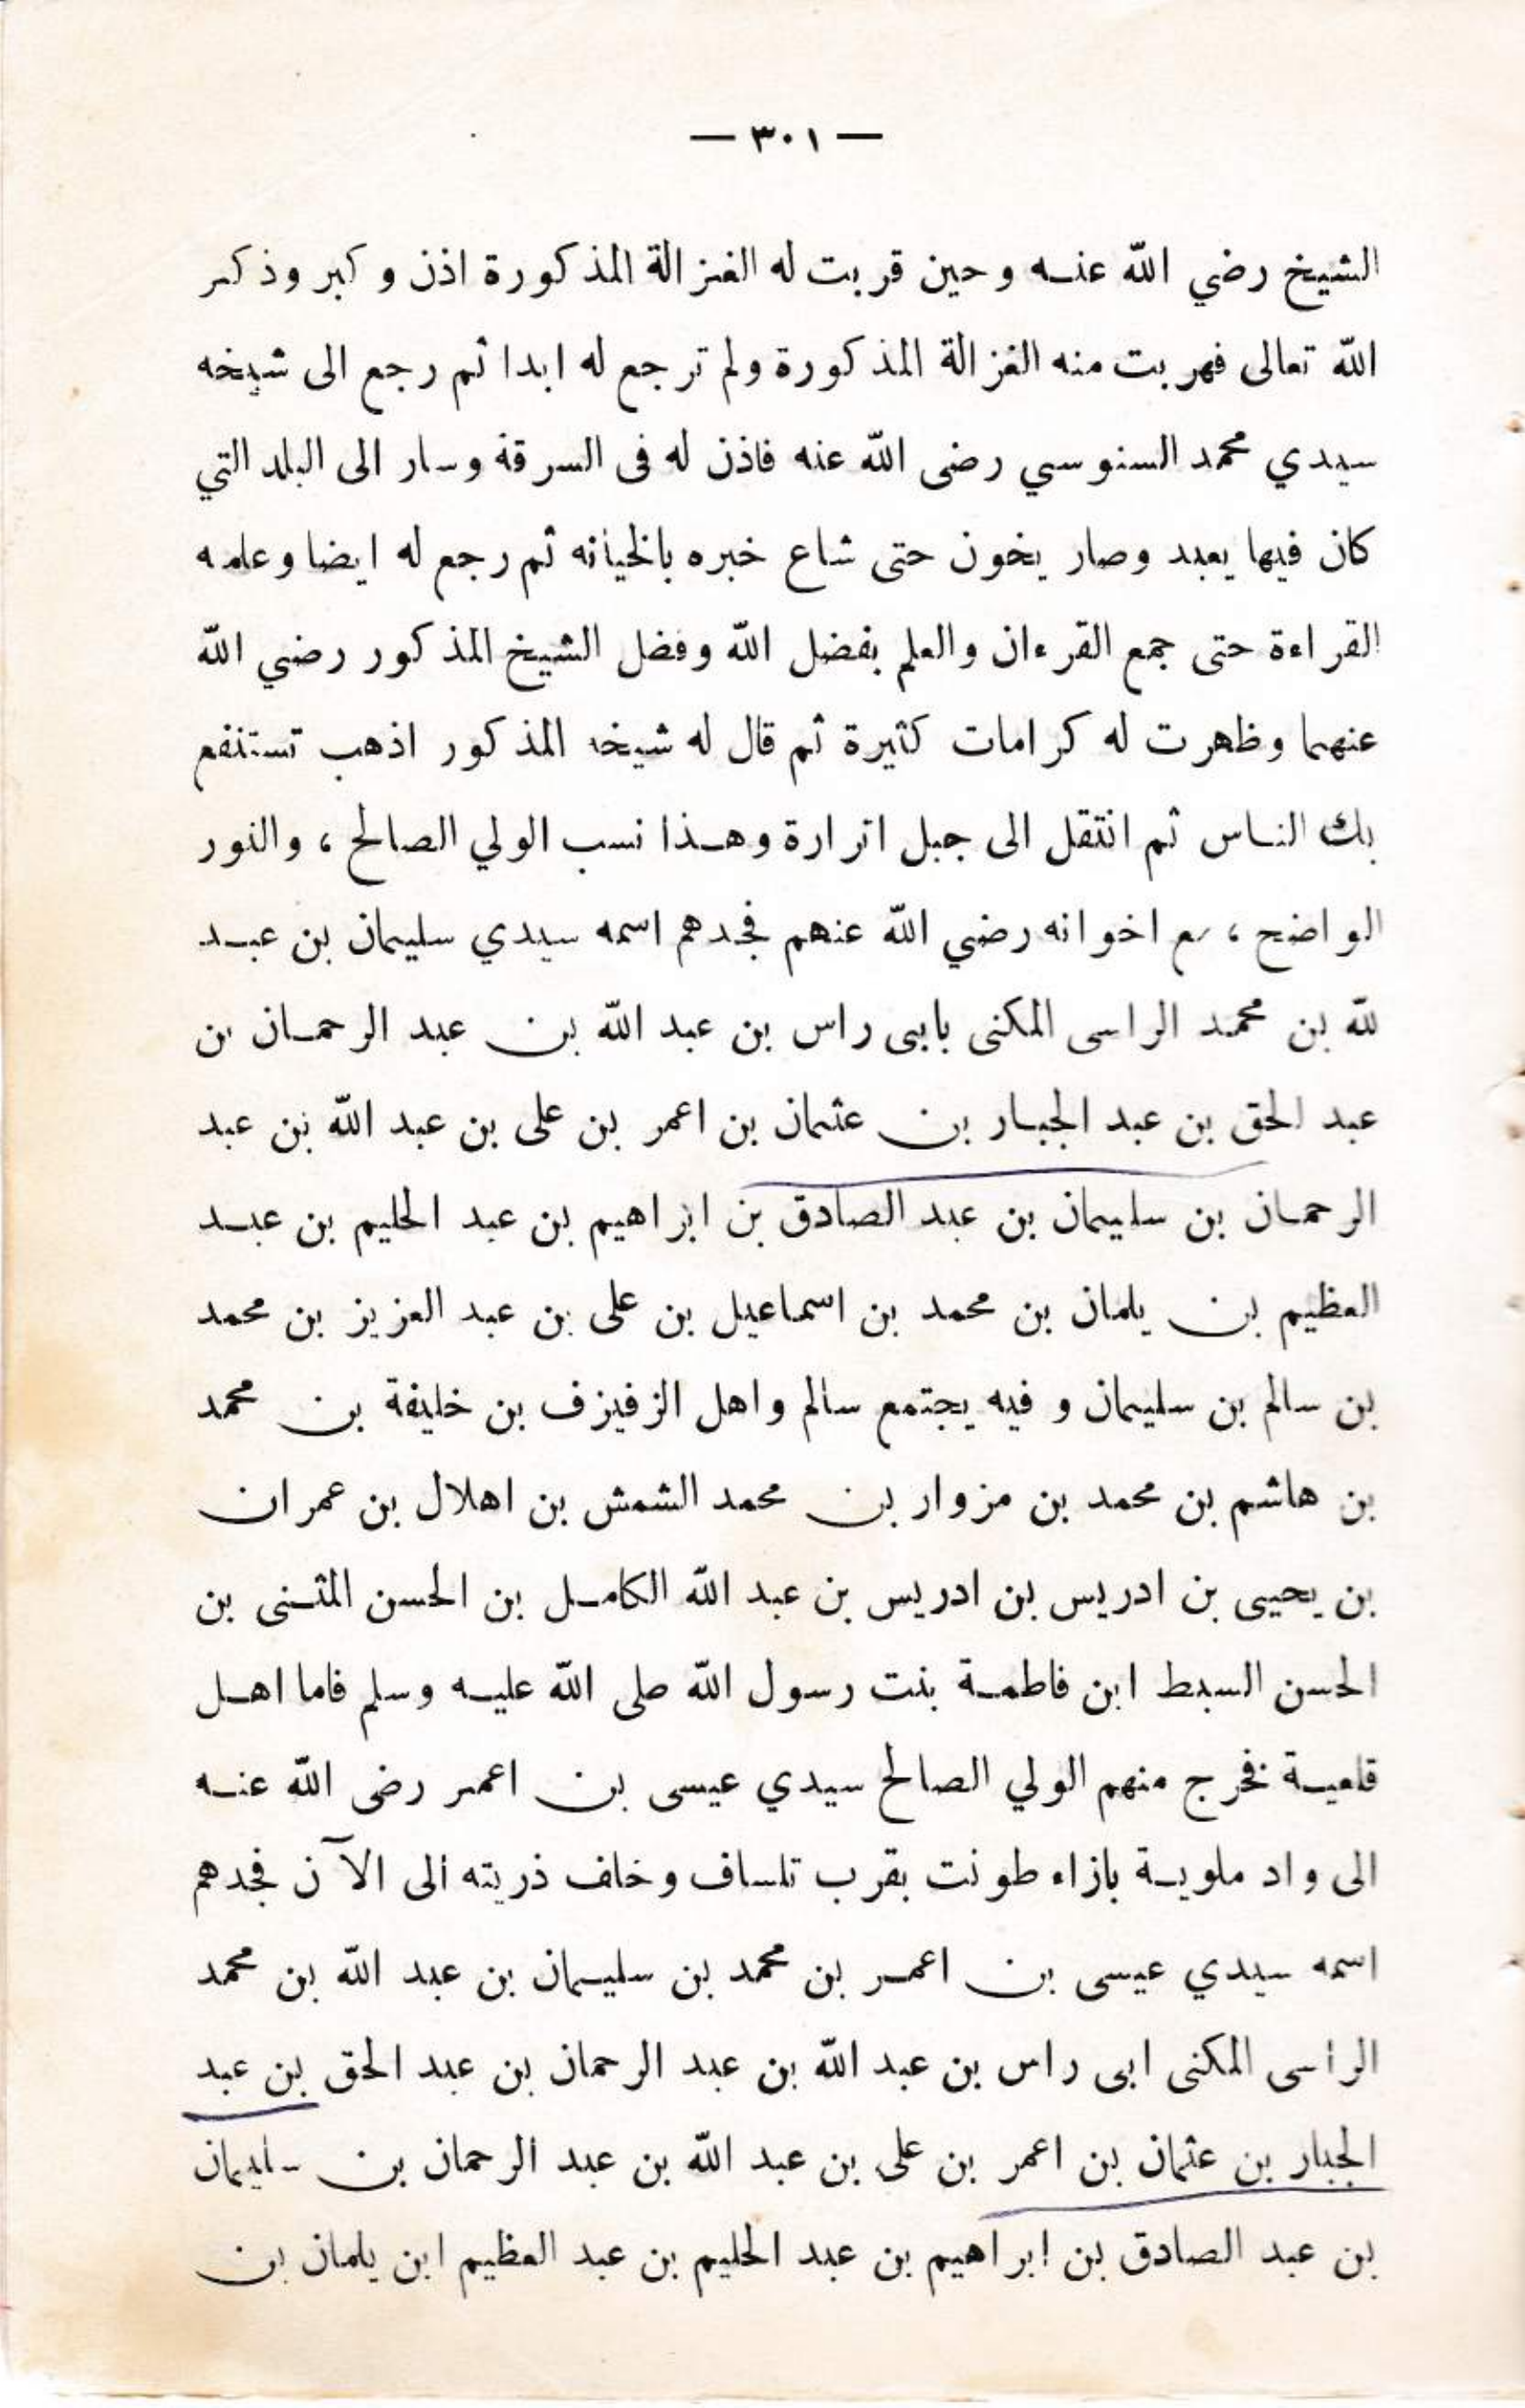 — ٣٠١ —
الشيخ رضي الله عنه وحين قربت له الغزالة المذكورة اذن وكبر وذكر
الله تعالى فهربت منه الغزالة المذكورة ولم ترجع له ابدا ثم رجع الى شيخه
سيدي محمد السنوسي رضى الله عنه فاذن له فى السرقة وسار الى البلد التي
كان فيها يعبد وصار يخون حتى شاع خبره بالخيانه ثم رجع له ايضا وعلمه
القراءة حتى جمع القرءان والعلم بفضل الله وفضل الشيخ المذكور رضي الله
عنهما وظهرت له كرامات كثيرة ثم قال له شيخه المذكور اذهب تستنفع
بك الناس ثم انتقل الى جبل اترارة وهذا نسب الولي الصالح ، والنور
الواضح ، مع اخوانه رضي الله عنهم فجدهم اسمه سيدي سليمان بن عبد
لله بن محمد الراسى المكنى بابى راس بن عبد الله بن عبد الرحمان بن
عبد الحق بن عبد الجبار بن عثمان بن اعمر بن على بن عبد الله بن عبد
الرحمان بن سليمان بن عبد الصادق بن ابراهيم بن عبد الحليم بن عبد
العظيم بن يلمان بن محمد بن اسماعيل بن على بن عبد العزيز بن محمد
بن سالم بن سليمان و فيه يجتمع سالم واهل الزفيزف بن خليفة بن محمد
بن هاشم بن محمد بن مزوار بن محمد الشمش بن اهلال بن عمران
بن يحيى بن ادريس بن ادريس بن عبد الله الكامل بن الحسن المثنى بن
الحسن السبط ابن فاطمة بنت رسول الله صلى الله عليه وسلم فاما اهل
قلعية فخرج منهم الولي الصالح سيدي عيسى بن اعمر رضى الله عنه
الى واد ملوية بازاء طونت بقرب تلساف وخلف ذريته الى الآن فجدهم
اسمه سيدي عيسى بن اعمر بن محمد بن سليمان بن عبد الله بن محمد
الراسى المكنى ابى راس بن عبد الله بن عبد الرحمان بن عبد الحق بن عبد
الجبار بن عثمان بن اعمر بن على بن عبد الله بن عبد الرحمان بن سليمان
بن عبد الصادق بن ابراهيم بن عبد الحليم بن عبد العظيم ابن يلمان بن